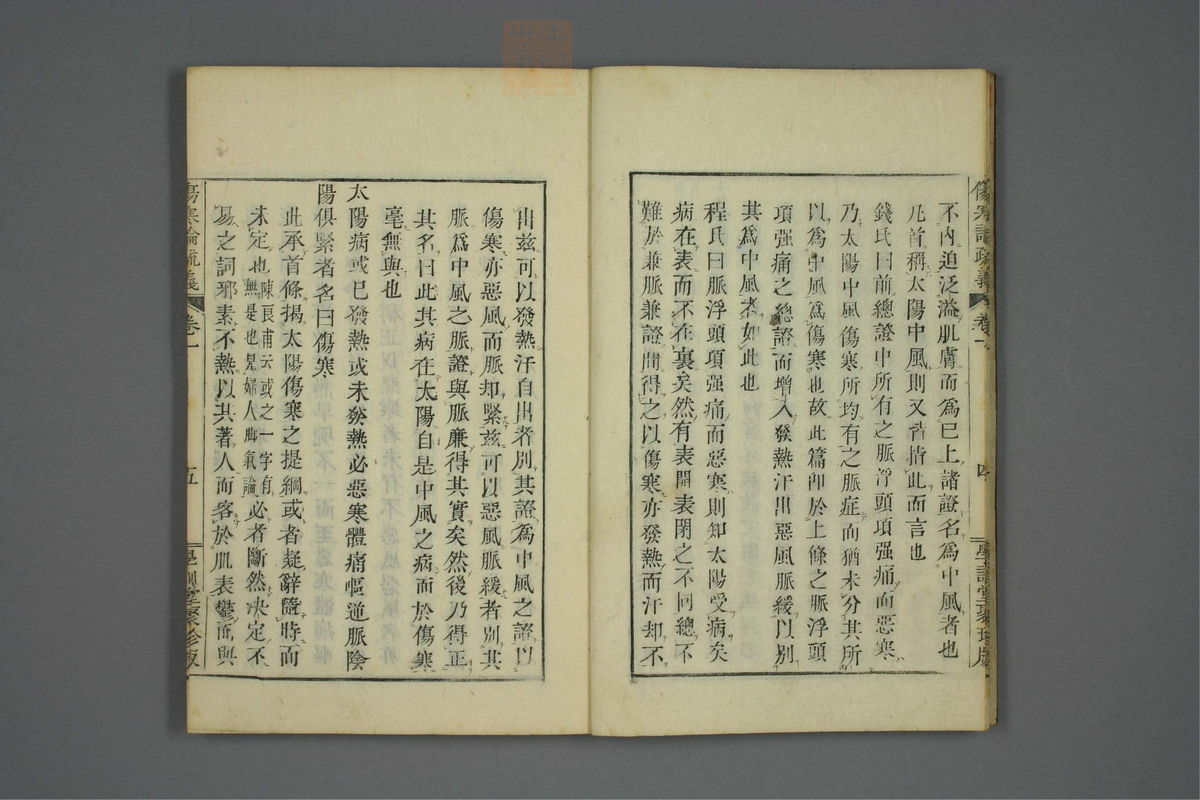 傷寒論疏義
卷一
四
學訓堂聚珍版
不內迫泛溢肌膚而為已上諸證名為中風者也
凡首稱太陽中風則又省指此而言也
錢氏曰前總證中所有之脈浮頭項强痛而惡寒
乃太陽中風傷寒所均有之脈症而猶未分其所
以為中風為傷寒也故此篇卽於上條之脈浮頭
項强痛之總證而增入發熱汗出惡風脈緩以別
其為中風者如此也
程氏曰脈浮頭項强痛而惡寒則知太陽受病矣
病在表而不在裏矣然有表開表閉之不同總不
難於兼脈兼證間得之以傷寒亦發熱而汗却不
出茲可以發熱汗自出者別其證為中風之證以
傷寒亦惡風而脈却緊茲可以惡風脈緩者別其
脈為中風之脈證與脈廉得其實矣然後乃得正
其名曰此其病在太陽自是中風之病而於傷寒
毫無與也
太陽病或已發熱或未發熱必惡寒體痛嘔逆脈陰
陽俱緊者名曰傷寒
此承首條揭太陽傷寒之提綱或者疑辭隨時而
未定也陳良甫云或之一字有
無是也見婦人脚氣論必者斷然決定不
易之詞邪素不熱以其著人而客於肌表鬱而與
傷寒論疏義
卷一
五
學訓堂聚珍版